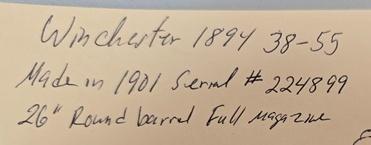 Winchester 1894 38-55
Made in 1901 Serial # 224899
26" Round barrel Full Magazine